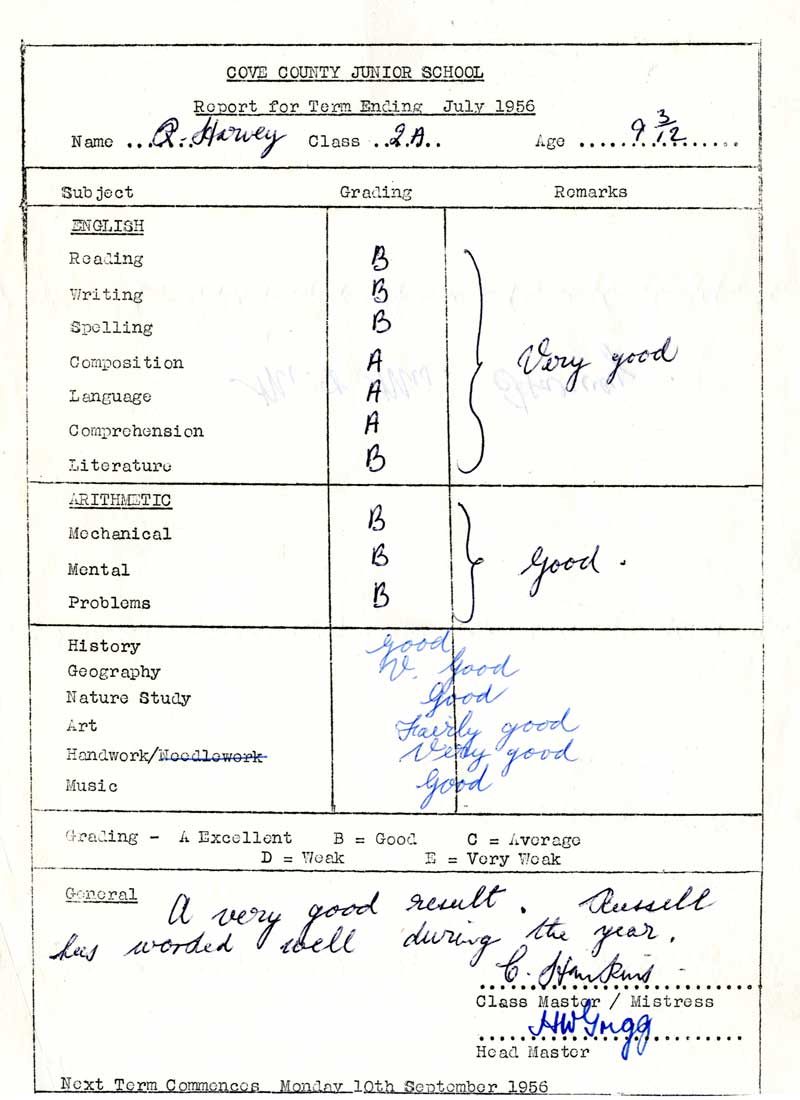 COVE COUNTY JUNIOR SCHOOL
Report for Term Ending July 1956
Name ...R. Harvey Class ..2A.. Age .......9 3/12.......
Subject Grading Remarks
ENGLISH
Reading B
Writing B
Spelling B
Composition A Very good
Language A
Comprehension A
Literature B
ARITHMETIC
Mechanical B
Mental B Good.
Problems B
History good
Geography V. Good
Nature Study Good
Art Fairly good
Handwork/Needlework Very good
Music Good
Grading - A Excellent B = Good C = Average
D = Weak E = Very Weak
General A very good result. Russell
has worked well during the year.
C. Hankins
Class Master / Mistress
HWGrigg
Head Master
Next Term Commences Monday 10th September 1956